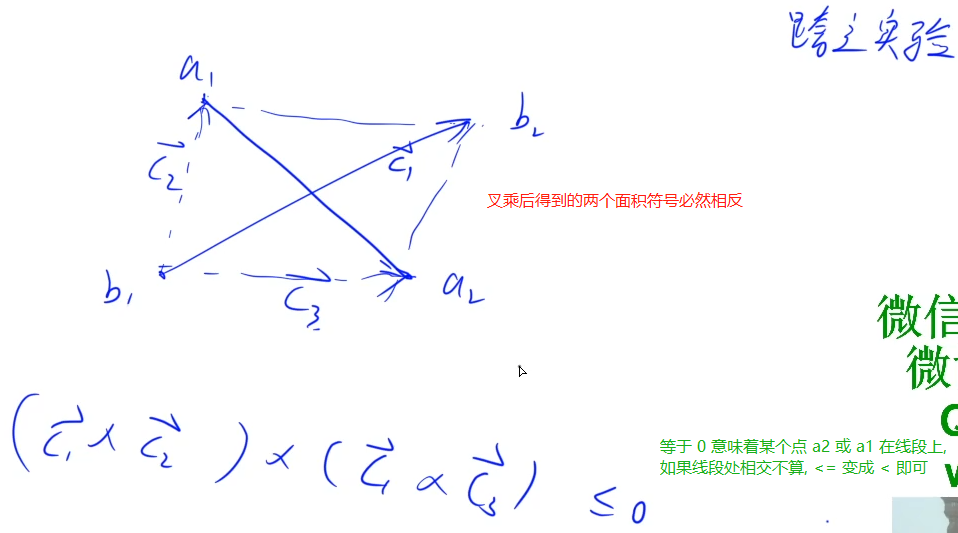 跨立实验
a₁
b₂
c₂⃗
c₁⃗
叉乘后得到的两个面积符号必然相反
b₁
c₃⃗
a₂
微信
微
Q
(c₁⃗ × c₂⃗) × (c₁⃗ × c₃⃗) ≤ 0
等于 0 意味着某个点 a2 或 a1 在线段上,
如果线段处相交不算, <= 变成 < 即可